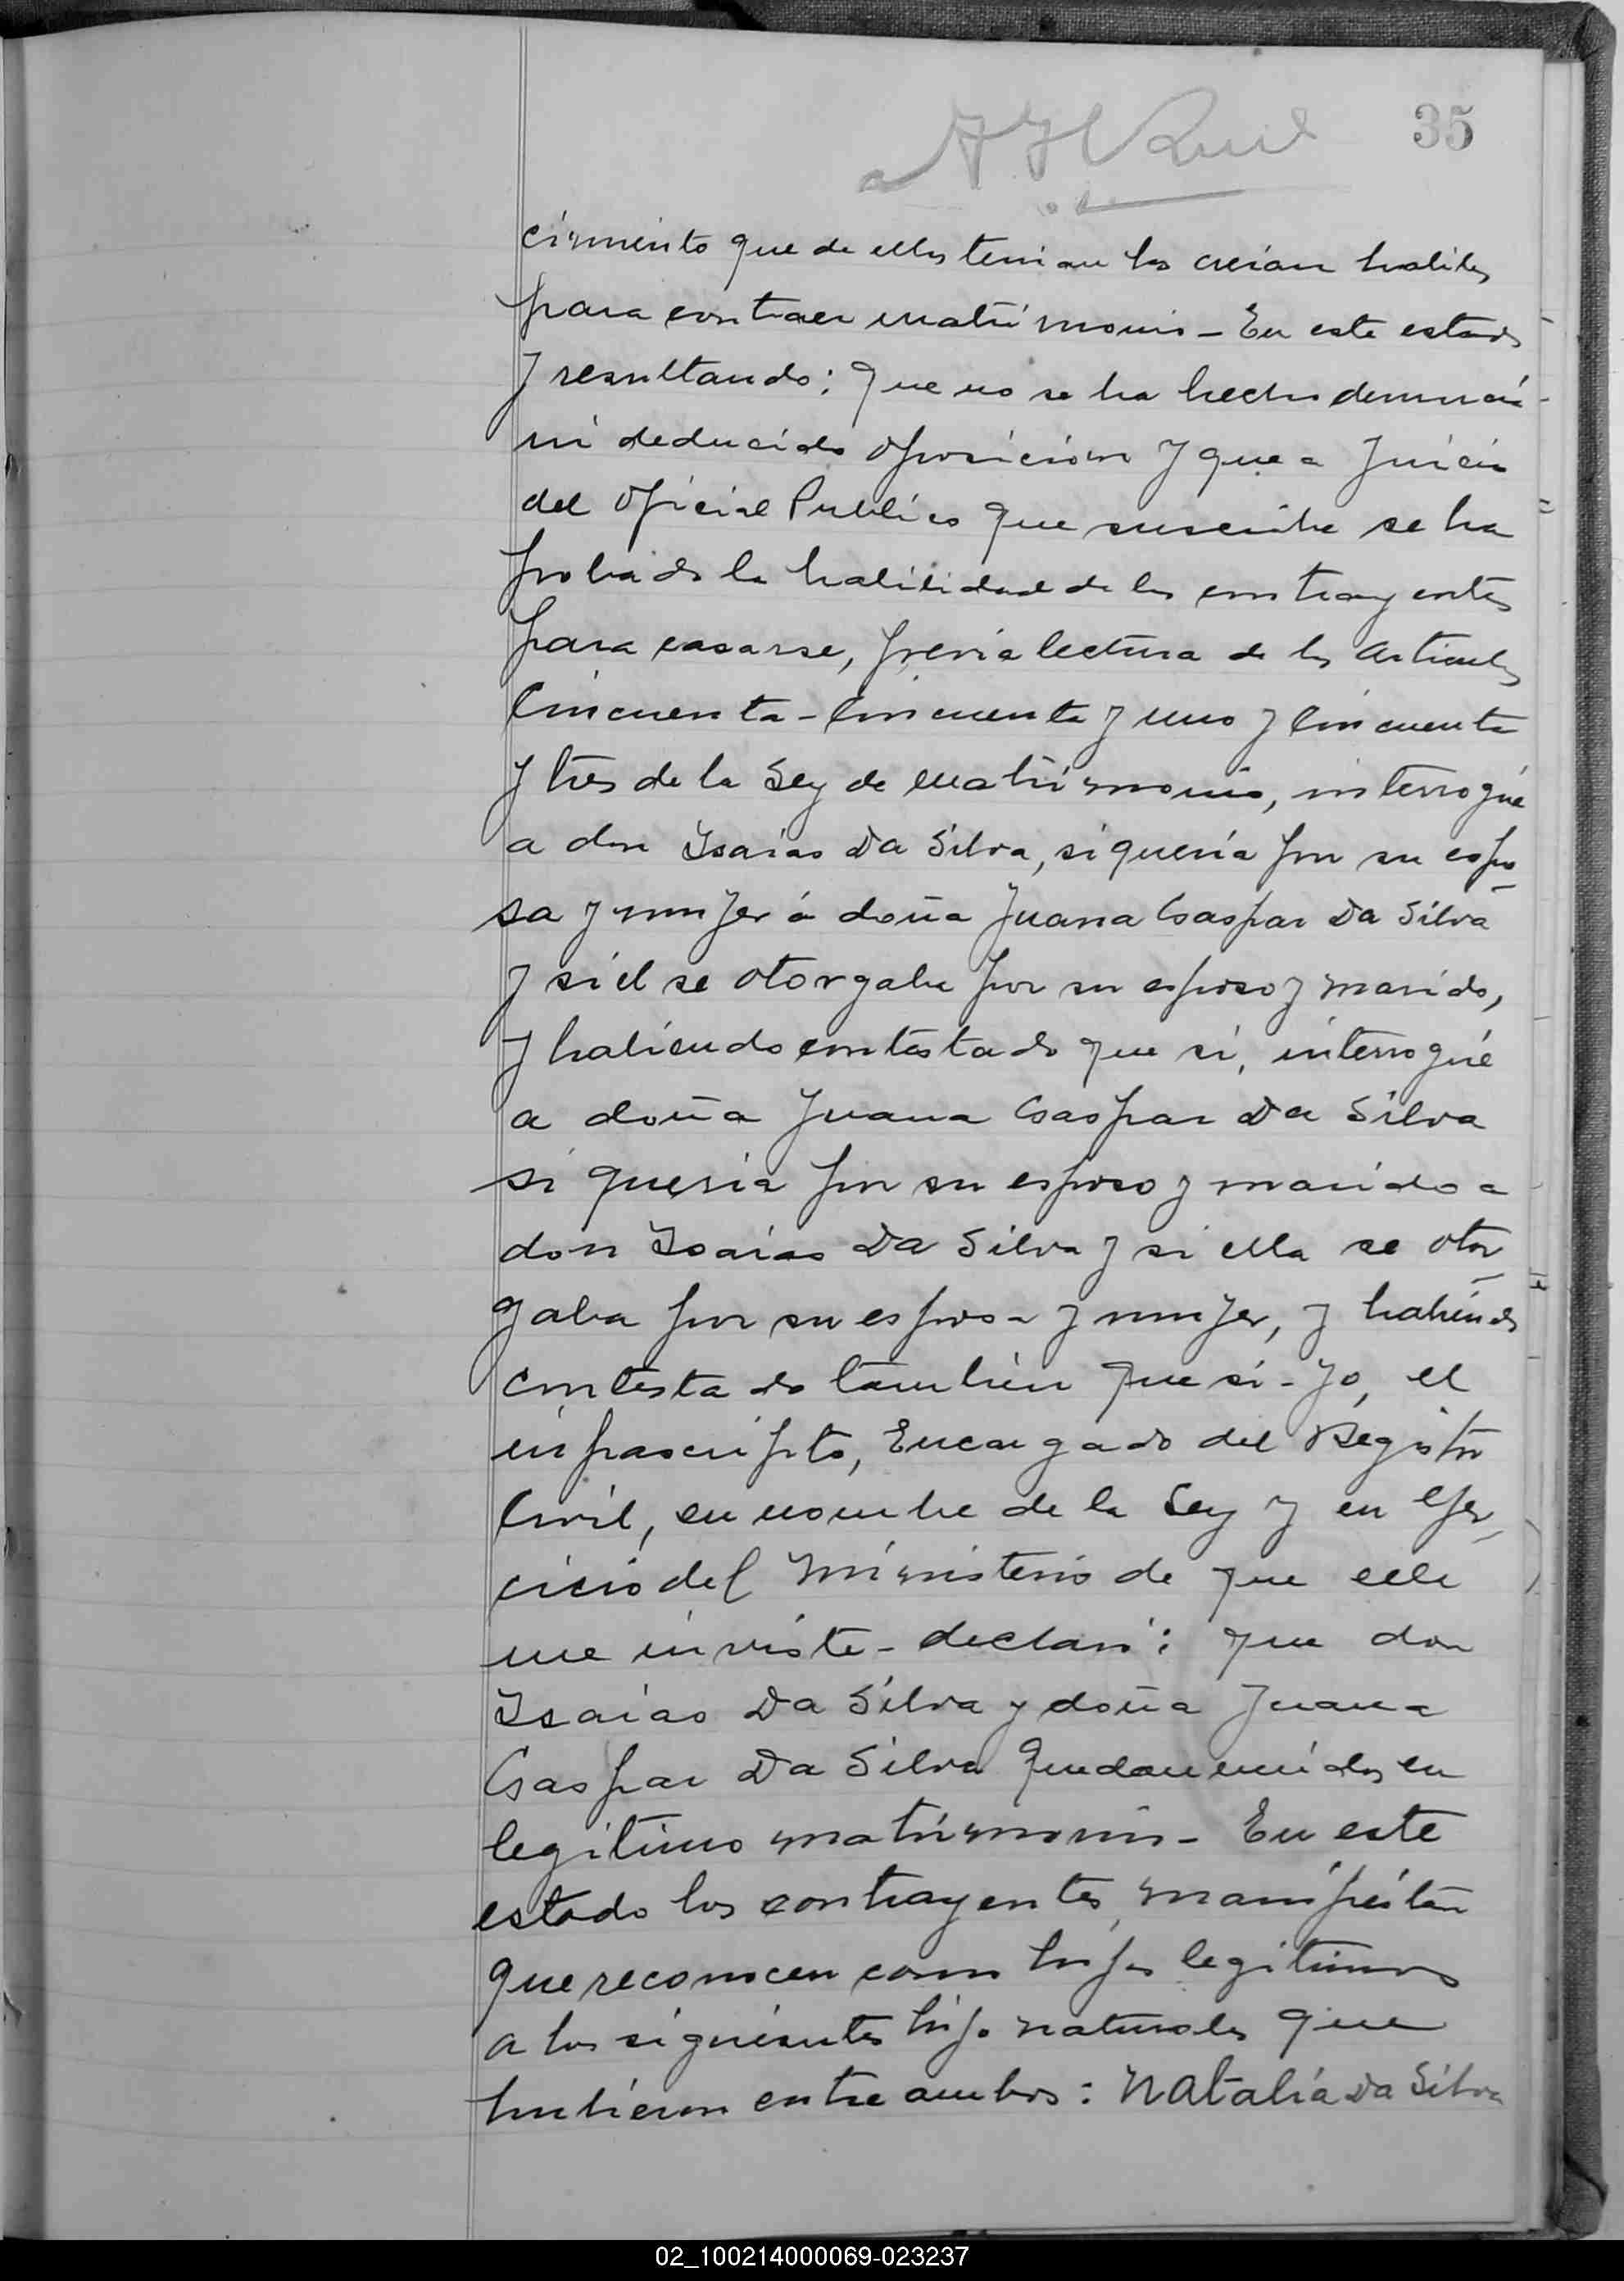 35
cimiento que de ellos tenian los creian habiles
para contraer matrimonio - En este estado
y resultando: que no se ha hecho denuncia
ni deducido oposición y que a juicio
del Oficial Publico que suscribe se ha
probado la habilidad de los contrayentes
para casarse, previa lectura de los articulos
Cincuenta - Cincuenta y uno y Cincuenta
y tres de la Ley de matrimonio, interrogué
a don Isaias Da Silva, si quería por su espo
sa y mujer á doña Juana Gaspar Da Silva
y si él se otorgaba por su esposo y marido,
y habiendo contestado que si, interrogué
a doña Juana Gaspar Da Silva
si queria por su esposo y marido a
don Isaias Da Silva y si ella se otor
gaba por su esposa y mujer, y habiendo
contestado tambien que si - Yo, el
infrascripto, Encargado del Registro
Civil, en nombre de la Ley y en Ejer
cicio del Ministerio de que ella
me inviste - declaró: que don
Isaias Da Silva y doña Juana
Gaspar Da Silva quedan unidos en
legitimo matrimonio - En este
estado los contrayentes manifiestan
que reconocen como hijos legitimos
a los siguientes hijo naturales que
hubieron entre ambos: Natalia Da Silva
02_100214000069-023237